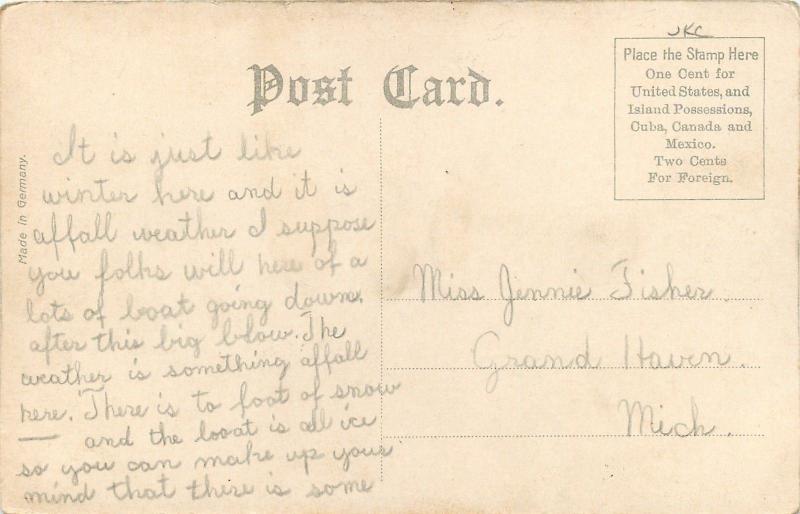 JKC
Post Card.
Place the Stamp Here
One Cent for
United States, and
Island Possessions,
Cuba, Canada and
Mexico.
Two Cents
For Foreign.
Made in Germany.
It is just like
winter here and it is
affall weather I suppose
you folks will here of a
lots of boat going down.
after this big blow. The
weather is something affall
here. There is to foot of snow
— and the boat is all ice
so you can make up your
mind that there is some
Miss Jennie Fisher.
Grand Haven.
Mich.